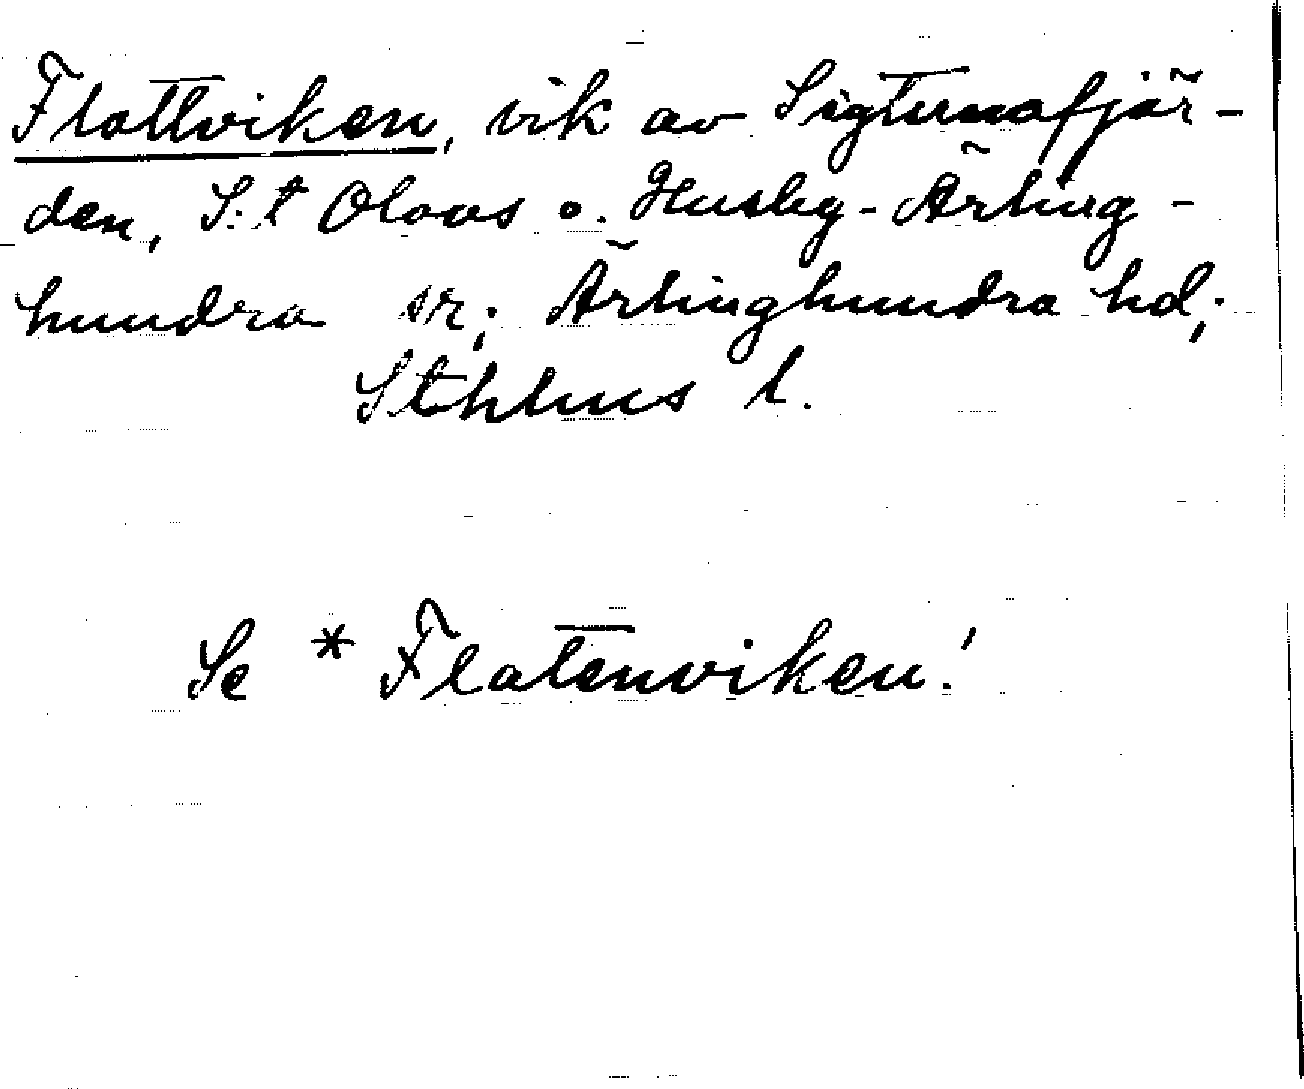 Flottviken, vik av Sigtunafjär-
den, S:t Olovs o. Husby-Ärling-
hundra sr; Ärlinghundra hd;
Sthlms l.
Se * Flatenviken!